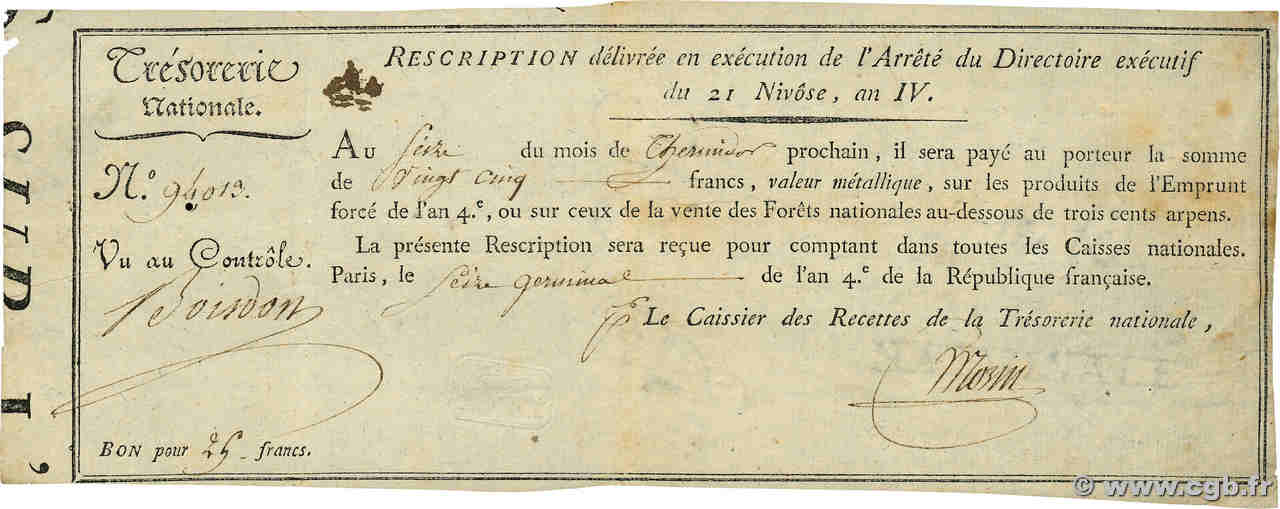 Trésorerie
Nationale.
N.º 94013.
Vu au Contrôle.
Boisdon
BON pour 25 francs.
RESCRIPTION délivrée en exécution de l'Arrêté du Directoire exécutif
du 21 Nivôse, an IV.
AU Seize du mois de Thermidor prochain, il sera payé au porteur la somme
de Vingt cinq francs, valeur métallique, sur les produits de l'Emprunt
forcé de l'an 4.e, ou sur ceux de la vente des Forêts nationales au-dessous de trois cents arpens.
La présente Rescription sera reçue pour comptant dans toutes les Caisses nationales.
Paris, le Seize germinal de l'an 4.e de la République française.
Le Caissier des Recettes de la Trésorerie nationale,
Morin
© www.cgb.fr